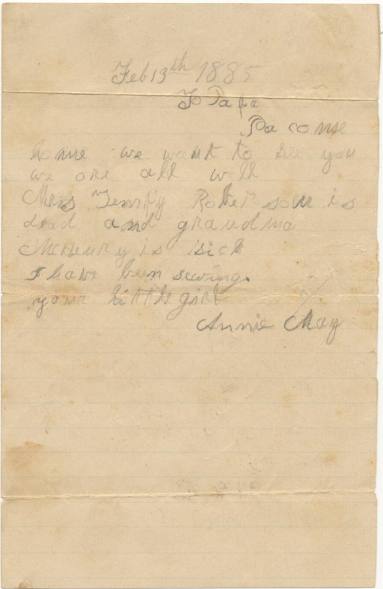 Feb 13th 1885
To Papa
Pa come
home we want to see you
we are all well
Mrs Robersone is
dead and grandma
McHenry is sick
I have been sewing.
your little girl
Annie May